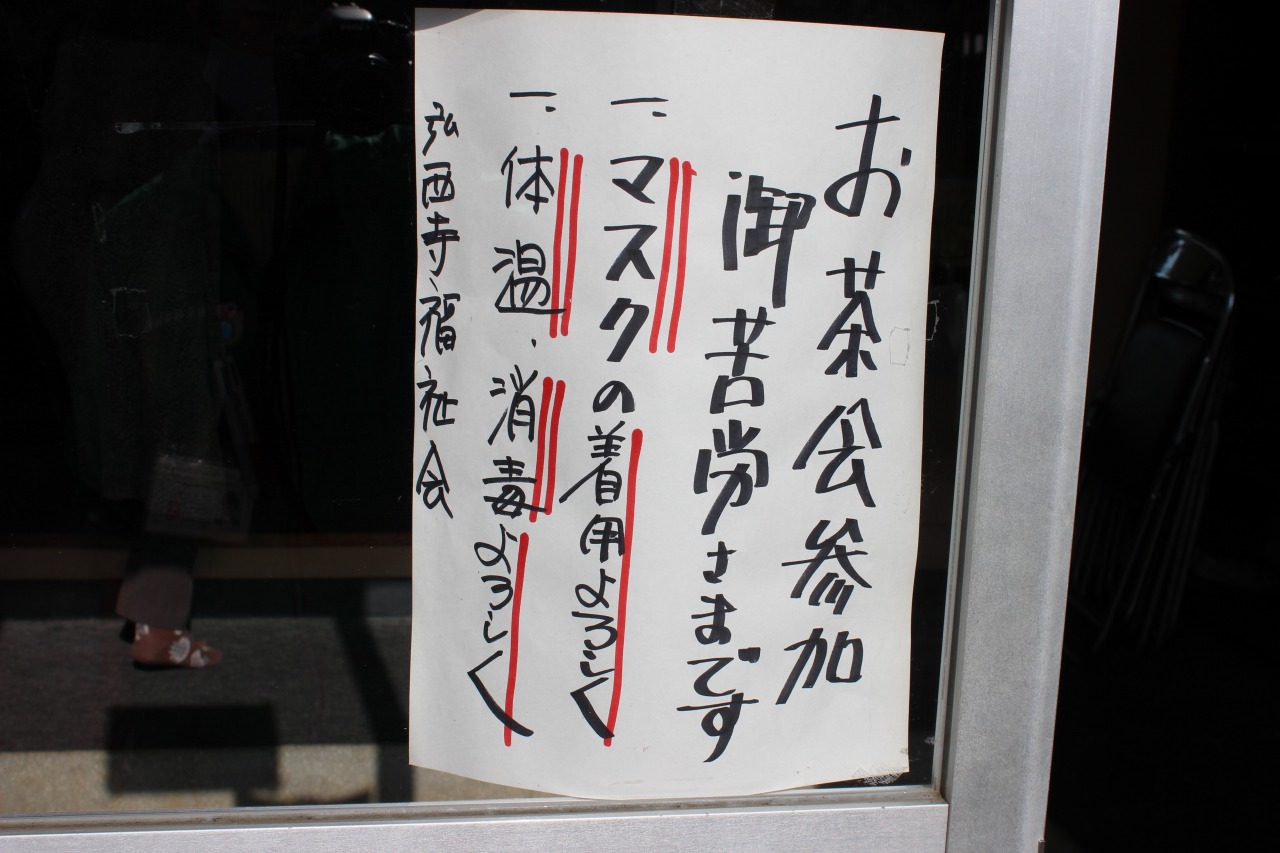 お茶会参加
御苦労さまです
一、マスクの着用よろしく
一、体温、消毒よろしく
弘西寺福祉会